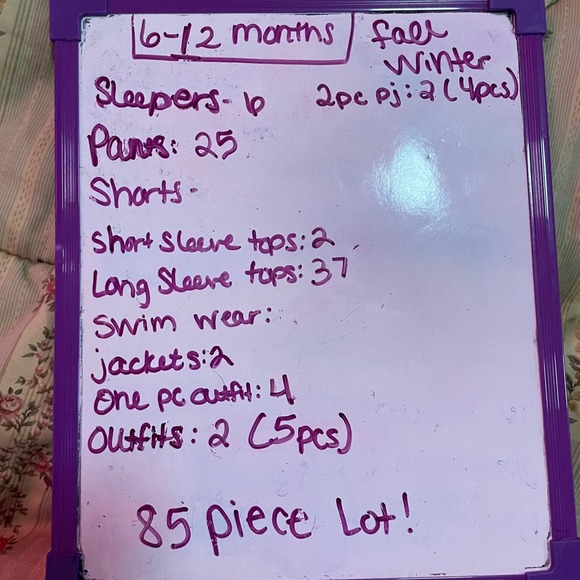 6-12 months
fall
winter
Sleepers- 6
2pc pj: 2 (4pcs)
Pants: 25
Shorts-
Short Sleeve tops: 2
Long Sleeve tops: 37
Swim wear:
jackets: 2
One pc outfit: 4
Outfits: 2 (5pcs)
85 piece Lot!